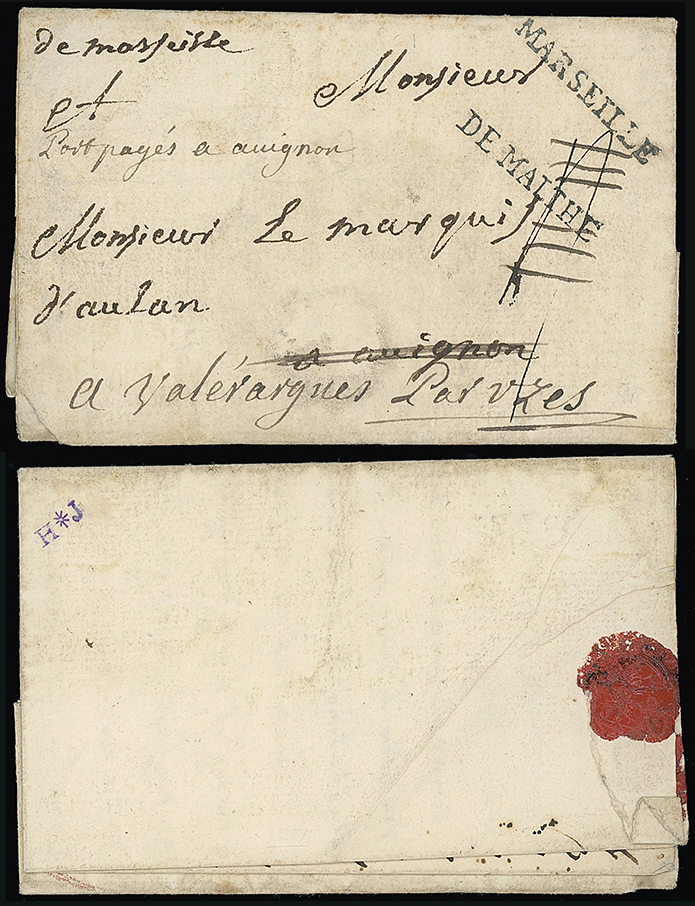 de marseille
Monsieur
MARSEILLE
DE MALTHE
et
Port payés a avignon
Monsieur Le marquis
d'aulan
a avignon
a Valérargues Par uzes
H*J